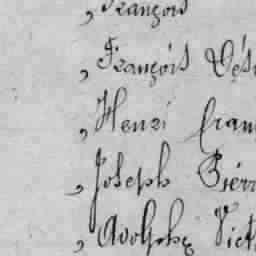 , François
, François Dés
, Henri Fran
, Joseph Pierr
, Adolphe Vict